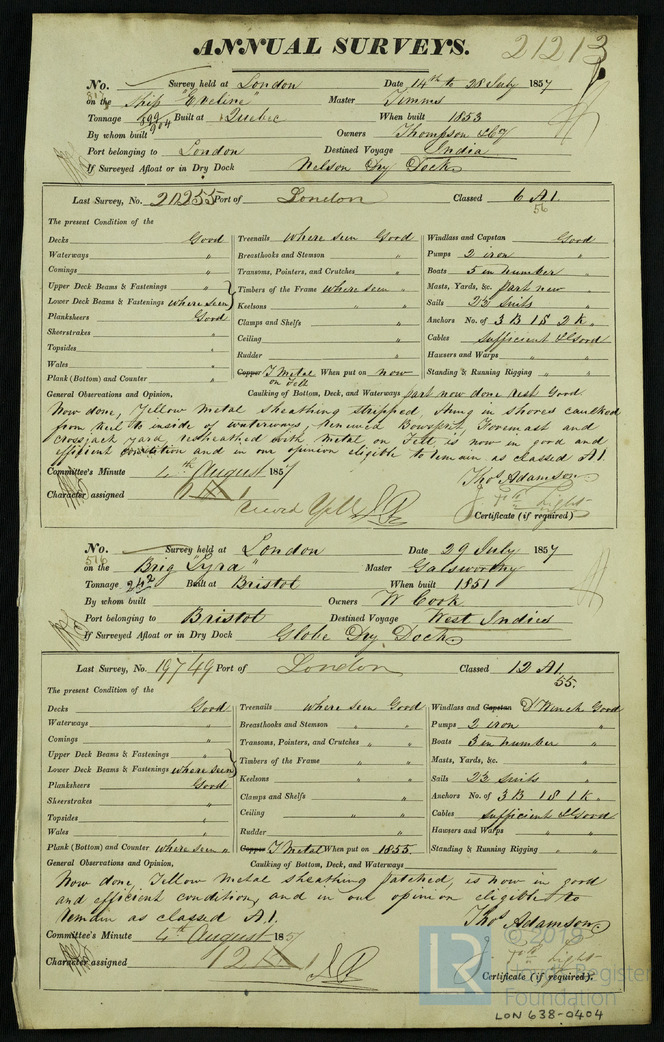 ANNUAL SURVEYS.
21213
No. Survey held at London Date 14th to 28 July 1857
on the Ship "Eveline" Master Timms
Tonnage 899 904 Built at Quebec When built 1853
By whom built Owners Thompson & Cy
Port belonging to London Destined Voyage India
If Surveyed Afloat or in Dry Dock Nelson Dry Dock
Last Survey, No. 20255 Port of London Classed 6 A1.
56
The present Condition of the
Decks Good Treenails where seen Good Windlass and Capstan Good
Waterways " Breasthooks and Stemson " Pumps 2 iron "
Comings " Transoms, Pointers, and Crutches " Boats 5 in number "
Upper Deck Beams & Fastenings " Timbers of the Frame where seen " Masts, Yards, &c. part new "
Lower Deck Beams & Fastenings where seen Keelsons " " Sails 2½ suits "
Planksheers Good Clamps and Shelfs " Anchors No. of 3 B 1 S 2 K "
Sheerstrakes " Ceiling " Cables Sufficient & Good
Topsides " Rudder " Hawsers and Warps " "
Wales "
Plank (Bottom) and Counter " Copper Y Metal on Felt When put on now Standing & Running Rigging " "
General Observations and Opinion, Caulking of Bottom, Deck, and Waterways part now done rest Good
Now done, Yellow Metal sheathing stripped, hung in shores caulked
from keel to inside of waterways, renewed Bowsprit, Foremast and
crossjack yard, resheathed with metal on Felt is now in good and
efficient condition and in our opinion eligible to remain as classed A1.
Committee's Minute 4th August 1857 Thos Adamson
Character assigned A1
Certificate (if required)
No. Survey held at London Date 29 July 1857
516
on the Brig "Lyra" Master Galsworthy
Tonnage 242 Built at Bristol When built 1851
By whom built Owners W Cook
Port belonging to Bristol Destined Voyage West Indies
If Surveyed Afloat or in Dry Dock Globe Dry Dock
Last Survey, No. 19749 Port of London Classed 12 A1.
55.
The present Condition of the
Decks Good Treenails where seen Good Windlass and Capstan & Winch Good
Waterways " Breasthooks and Stemson " " Pumps 2 iron "
Comings " Transoms, Pointers, and Crutches " " Boats 3 in number "
Upper Deck Beams & Fastenings " Timbers of the Frame " " Masts, Yards, &c. "
Lower Deck Beams & Fastenings where seen Keelsons " " Sails 2½ suits "
Planksheers Good Clamps and Shelfs " " Anchors No. of 3 B 1 S 1 K "
Sheerstrakes " Ceiling " " Cables Sufficient & Good
Topsides " Rudder " Hawsers and Warps " "
Wales "
Plank (Bottom) and Counter where seen " Copper Y Metal When put on 1855 Standing & Running Rigging " "
General Observations and Opinion, Caulking of Bottom, Deck, and Waterways
Now done, Yellow Metal sheathing patched, is now in good
and efficient condition, and in our opinion eligible to
remain as classed A1.
Thos Adamson
Committee's Minute 4th August 1857
Character assigned 12 A1
Certificate (if required).
LR © 2019
Lloyd's Register
Foundation
LON 638-0404